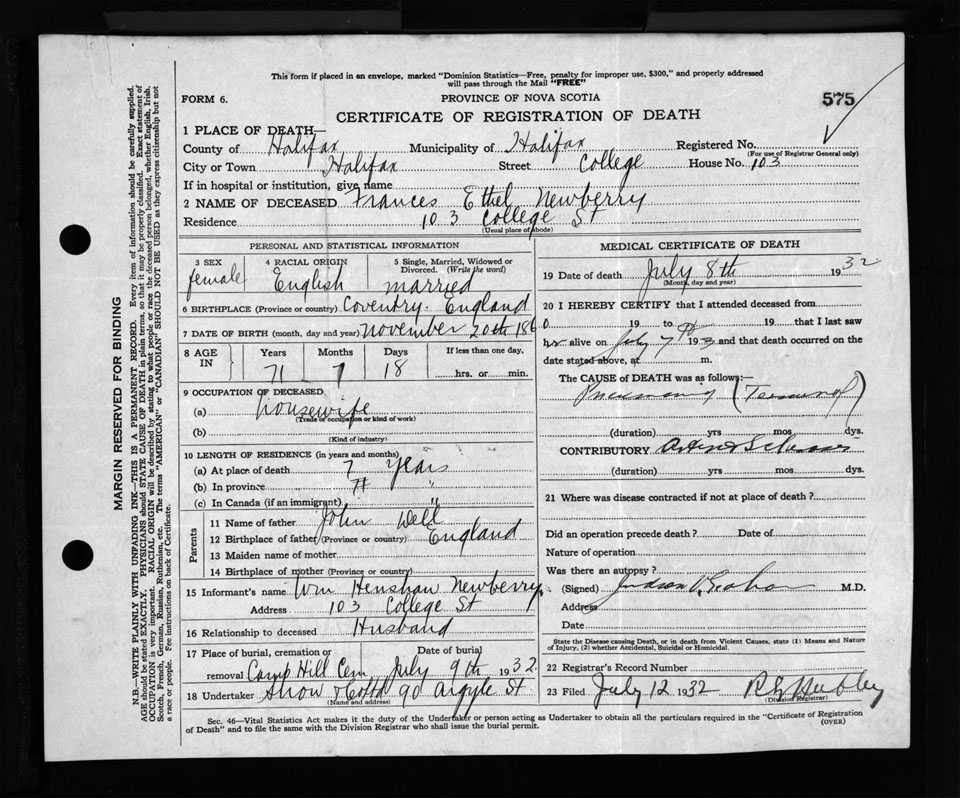 This form if placed in an envelope, marked "Dominion Statistics—Free, penalty for improper use, $300," and properly addressed
will pass through the Mail "FREE"
FORM 6.
PROVINCE OF NOVA SCOTIA
575
CERTIFICATE OF REGISTRATION OF DEATH
1 PLACE OF DEATH—
County of Halifax Municipality of Halifax Registered No.
(For use of Registrar General only)
City or Town Halifax Street College House No. 103
If in hospital or institution, give name
2 NAME OF DECEASED Frances Ethel Newberry
Residence 103 College St
(Usual place of abode)
PERSONAL AND STATISTICAL INFORMATION
3 SEX female
4 RACIAL ORIGIN English
5 Single, Married, Widowed or Divorced. (Write the word) married
6 BIRTHPLACE (Province or country) Coventry. England
7 DATE OF BIRTH (month, day and year) November 20th 186
8 AGE IN
Years Months Days If less than one day,
71 7 18 hrs. or min.
9 OCCUPATION OF DECEASED
(a) housewife
(Trade or occupation or kind of work)
(b)
(Kind of industry)
10 LENGTH OF RESIDENCE (in years and months)
(a) At place of death 7 years
(b) In province "
(c) In Canada (if an immigrant) "
Parents
11 Name of father John
12 Birthplace of father (Province or country) England
13 Maiden name of mother
14 Birthplace of mother (Province or country)
15 Informant's name Wm Henshaw Newberry.
Address 103 College St
16 Relationship to deceased Husband
17 Place of burial, cremation or removal Camp Hill Cem
Date of burial July 9th 1932
18 Undertaker Snow & 90 Argyle St.
(Name and address)
MEDICAL CERTIFICATE OF DEATH
19 Date of death July 8th 1932
(Month, day and year)
20 I HEREBY CERTIFY that I attended deceased from
19 to 19 that I last saw
her alive on July 7 193 and that death occurred on the
date stated above, at m.
The CAUSE of DEATH was as follows:—
Pneumonia (Terminal)
(duration) yrs mos dys.
CONTRIBUTORY
(duration) yrs. mos. dys.
21 Where was disease contracted if not at place of death?
Did an operation precede death? Date of
Nature of operation
Was there an autopsy?
(Signed) M.D.
Address
Date
State the Disease causing Death, or in death from Violent Causes, state (1) Means and Nature
of Injury, (2) whether Accidental, Suicidal or Homicidal.
22 Registrar's Record Number
23 Filed July 12 1932
(Division Registrar)
Sec. 46—Vital Statistics Act makes it the duty of the Undertaker or person acting as Undertaker to obtain all the particulars required in the "Certificate of Registration
of Death" and to file the same with the Division Registrar who shall issue the burial permit.
(OVER)
MARGIN RESERVED FOR BINDING
N.B.—WRITE PLAINLY WITH UNFADING INK—THIS IS A PERMANENT RECORD. Every item of information should be carefully supplied.
AGE should be stated EXACTLY. PHYSICIANS should STATE CAUSE OF DEATH in plain terms, so that it may be properly classified. Exact statement of
OCCUPATION is very important. RACIAL ORIGIN will be described by stating to what people or race the deceased person belonged, whether English, Irish,
Scotch, French, German, Russian, Ruthenian, etc. The terms "AMERICAN" or "CANADIAN" SHOULD NOT BE USED as they express citizenship but not
a race or people. Fee instructions on back of Certificate.